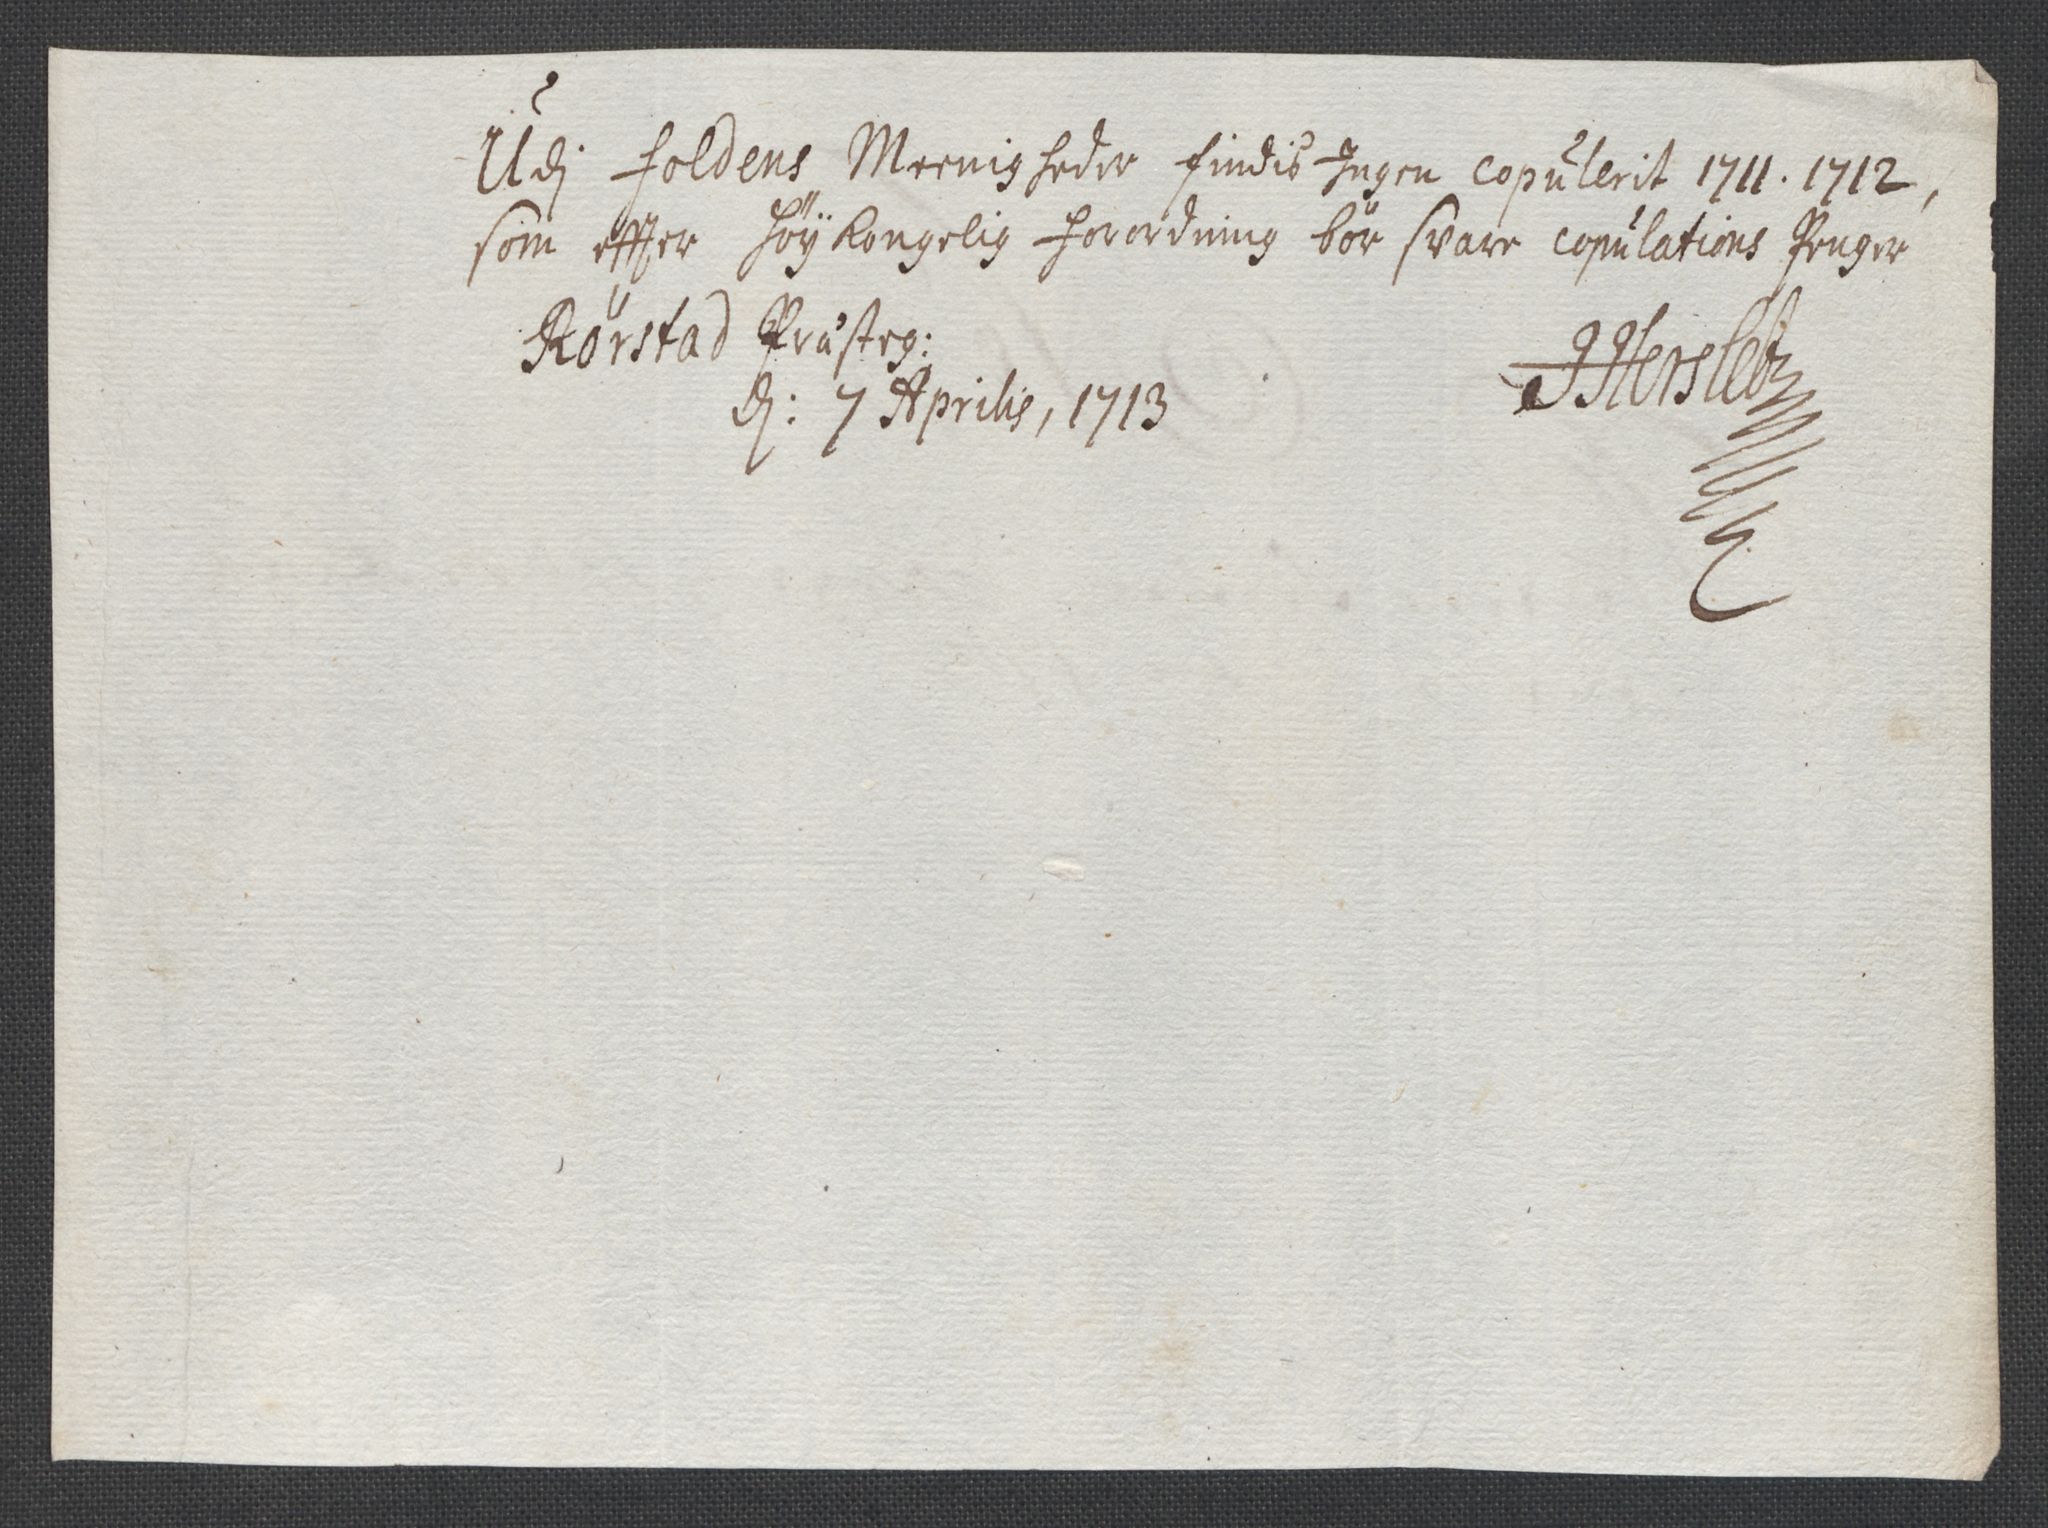 Udj foldens Meenigheder findis Ingen copulerit 1711. 1712,
som effter höÿkongelig forordning bör svare copulations Penger
Rörstad Præsteg:
dj: 7 Aprilis, 1713
JHersleb